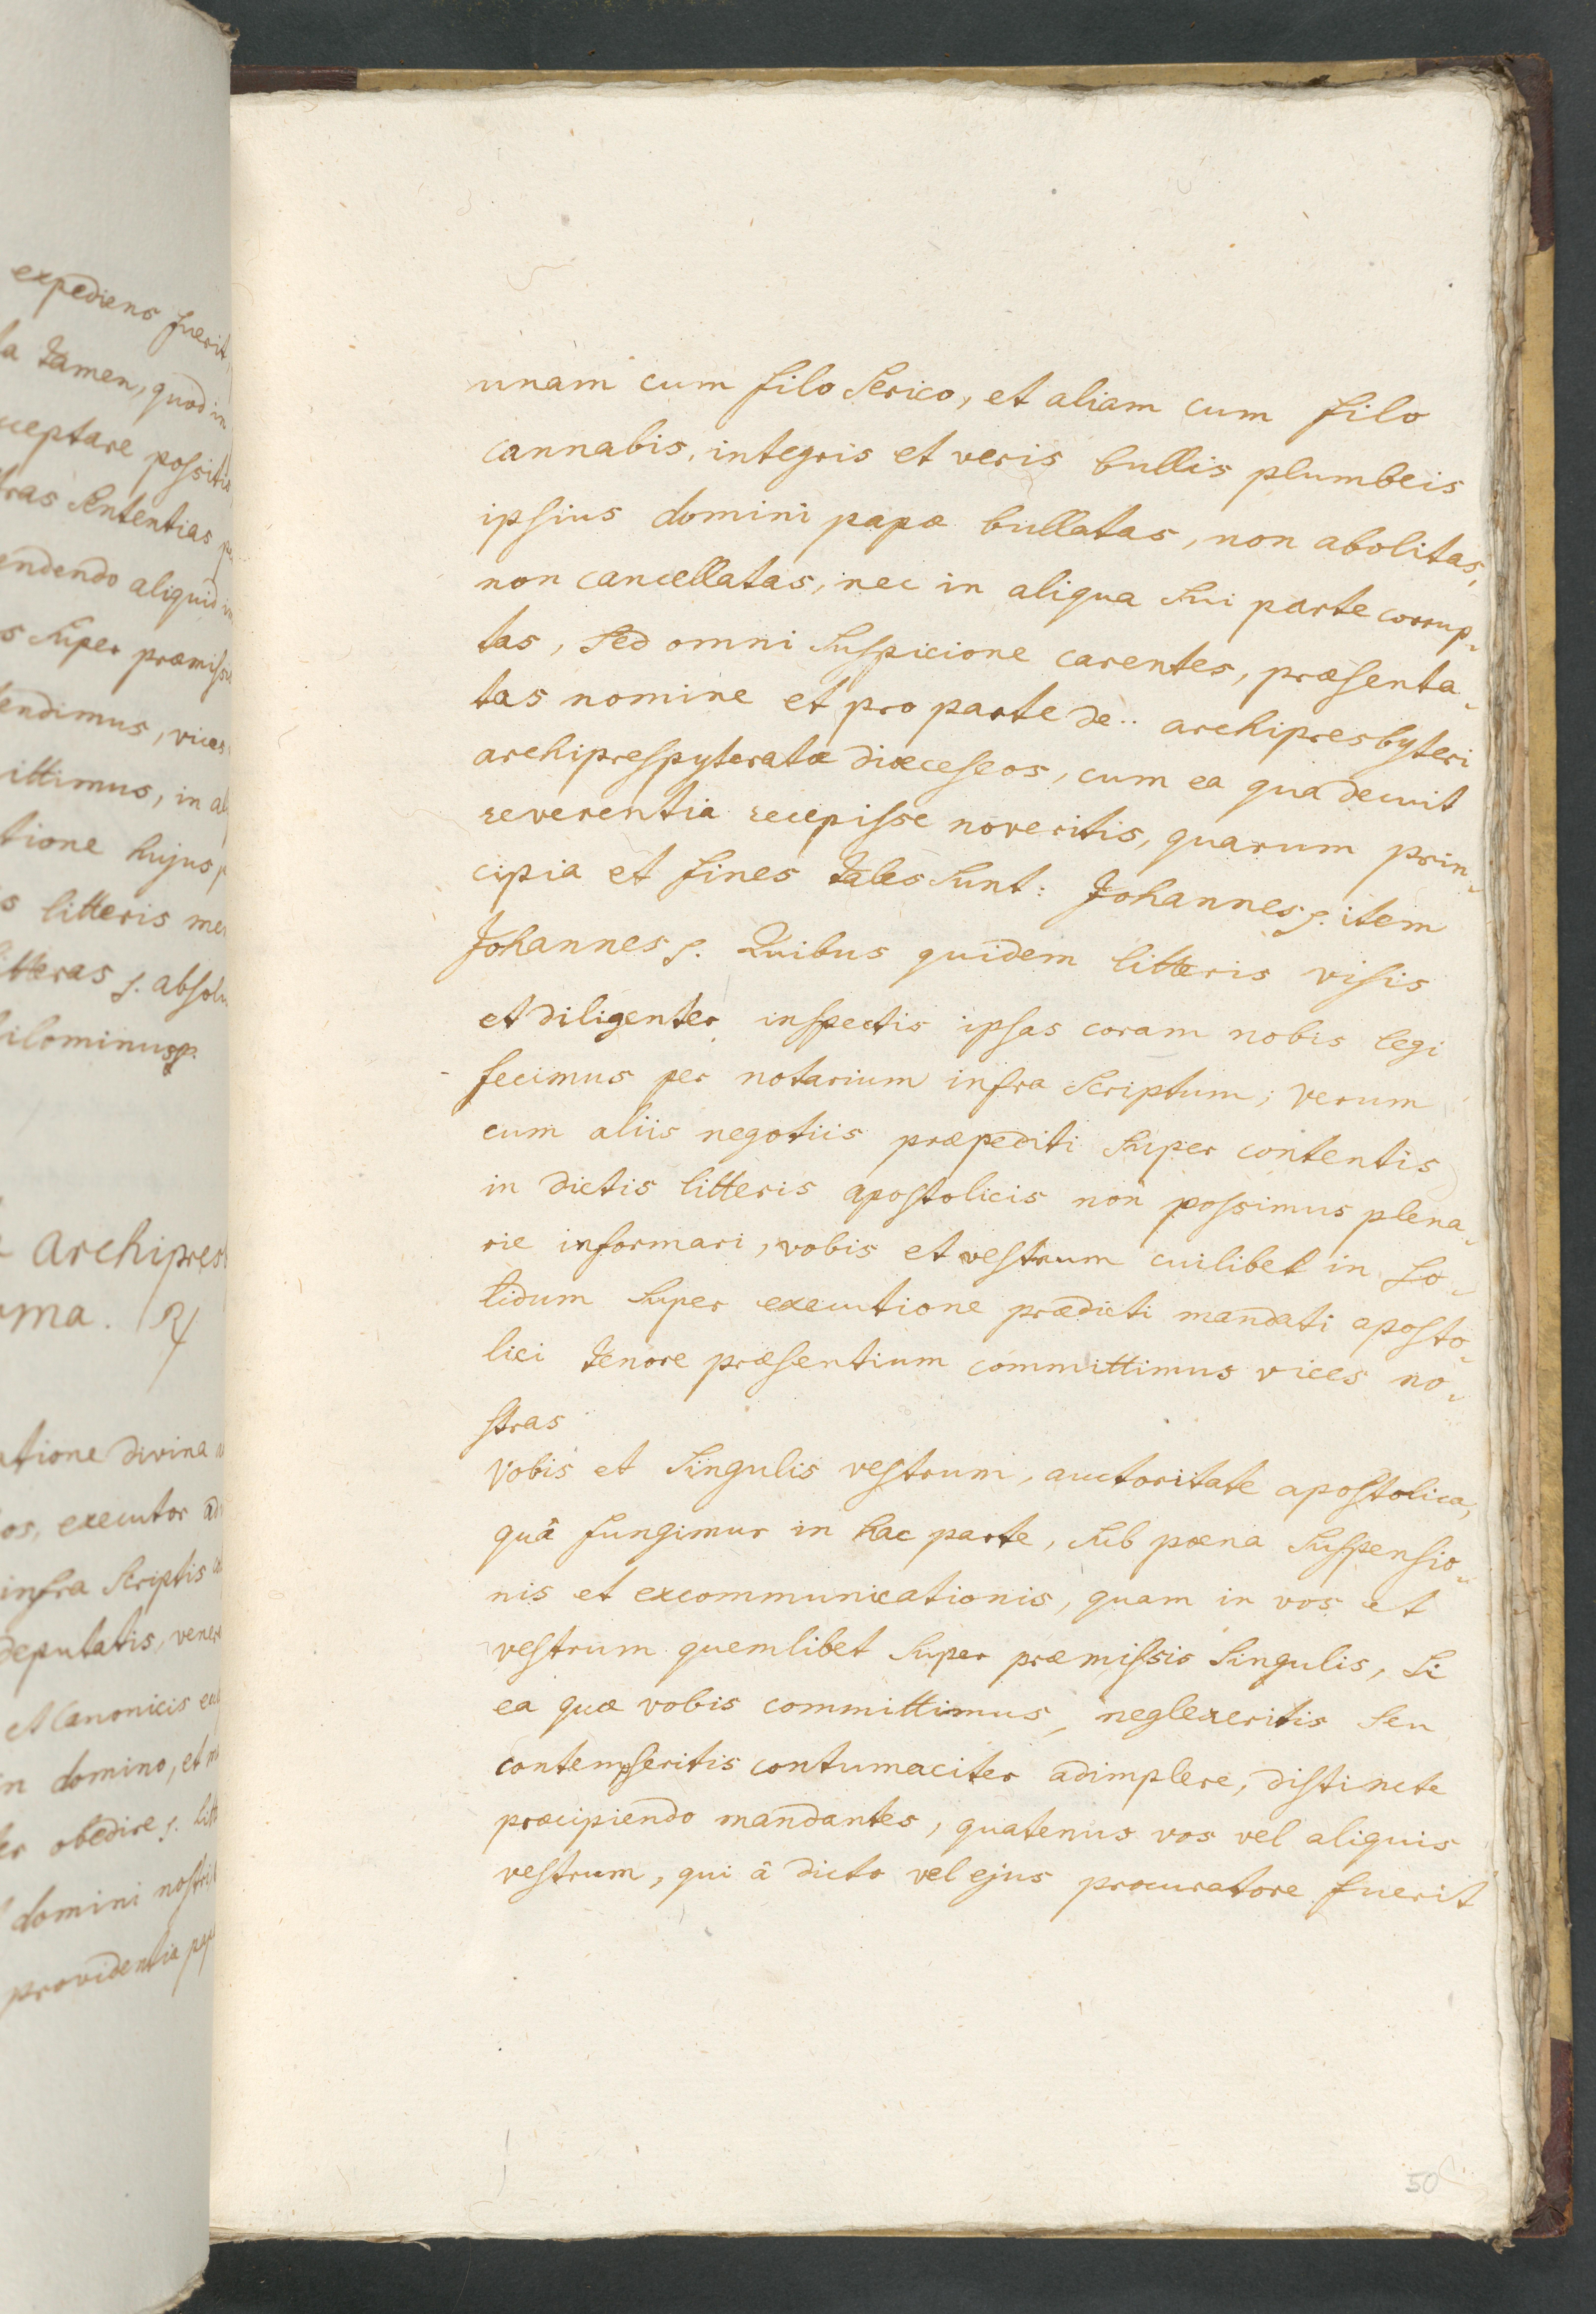 expediens fuerit,
la tamen, quod in
ceptare possitis
tras sententias
endendo aliquid
s super præmissis
tendimus, vices
ittimus, in
tione hujus
s litteris
itteras ꝭ. absol
ilominus ꝭ.
archipres
ma. R
atione divina
os, executor
infra scriptis
deputatis, vener
et canonicis
in domino, et
er obedire ꝭ. litt
domini nostri
providentia pap
unam cum filo serico, et aliam cum filo
cannabis, integris et veris bullis plumbeis
ipsius domini papæ bullatas, non abolitas,
non cancellatas, nec in aliqua sui parte corrup-
tas, sed omni suspicione carentes, præsenta-
tas nomine et pro parte de .. archipresbyteri
archipresPyteratæ diœceseos, cum ea qua decuit
reverentia recepisse noveritis, quarum prin-
cipia et fines tales sunt: Johannes ꝭ. item
Johannes ꝭ. Quibus quidem litteris visis
et diligenter inspectis ipsas coram nobis legi
fecimus per notarium infra scriptum; verum
cum aliis negotiis præpediti super contentis
in dictis litteris apostolicis non possimus plena-
rie informari, vobis et vestrum cuilibet in so-
lidum super executione prædicti mandati aposto-
lici tenore præsentium committimus vices no-
stras
Vobis et singulis vestrum, auctoritate apostolica,
quâ fungimur in hac parte, sub pœna suspensio-
nis et excommunicationis, quam in vos et
vestrum quemlibet super præmissis singulis, si
ea quæ vobis committimus, neglexeritis seu
contempseritis contumaciter adimplere, distincte
præcipiendo mandantes, quatenus vos vel aliquis
vestrum, qui â dicto vel ejus procuratore fuerit
50